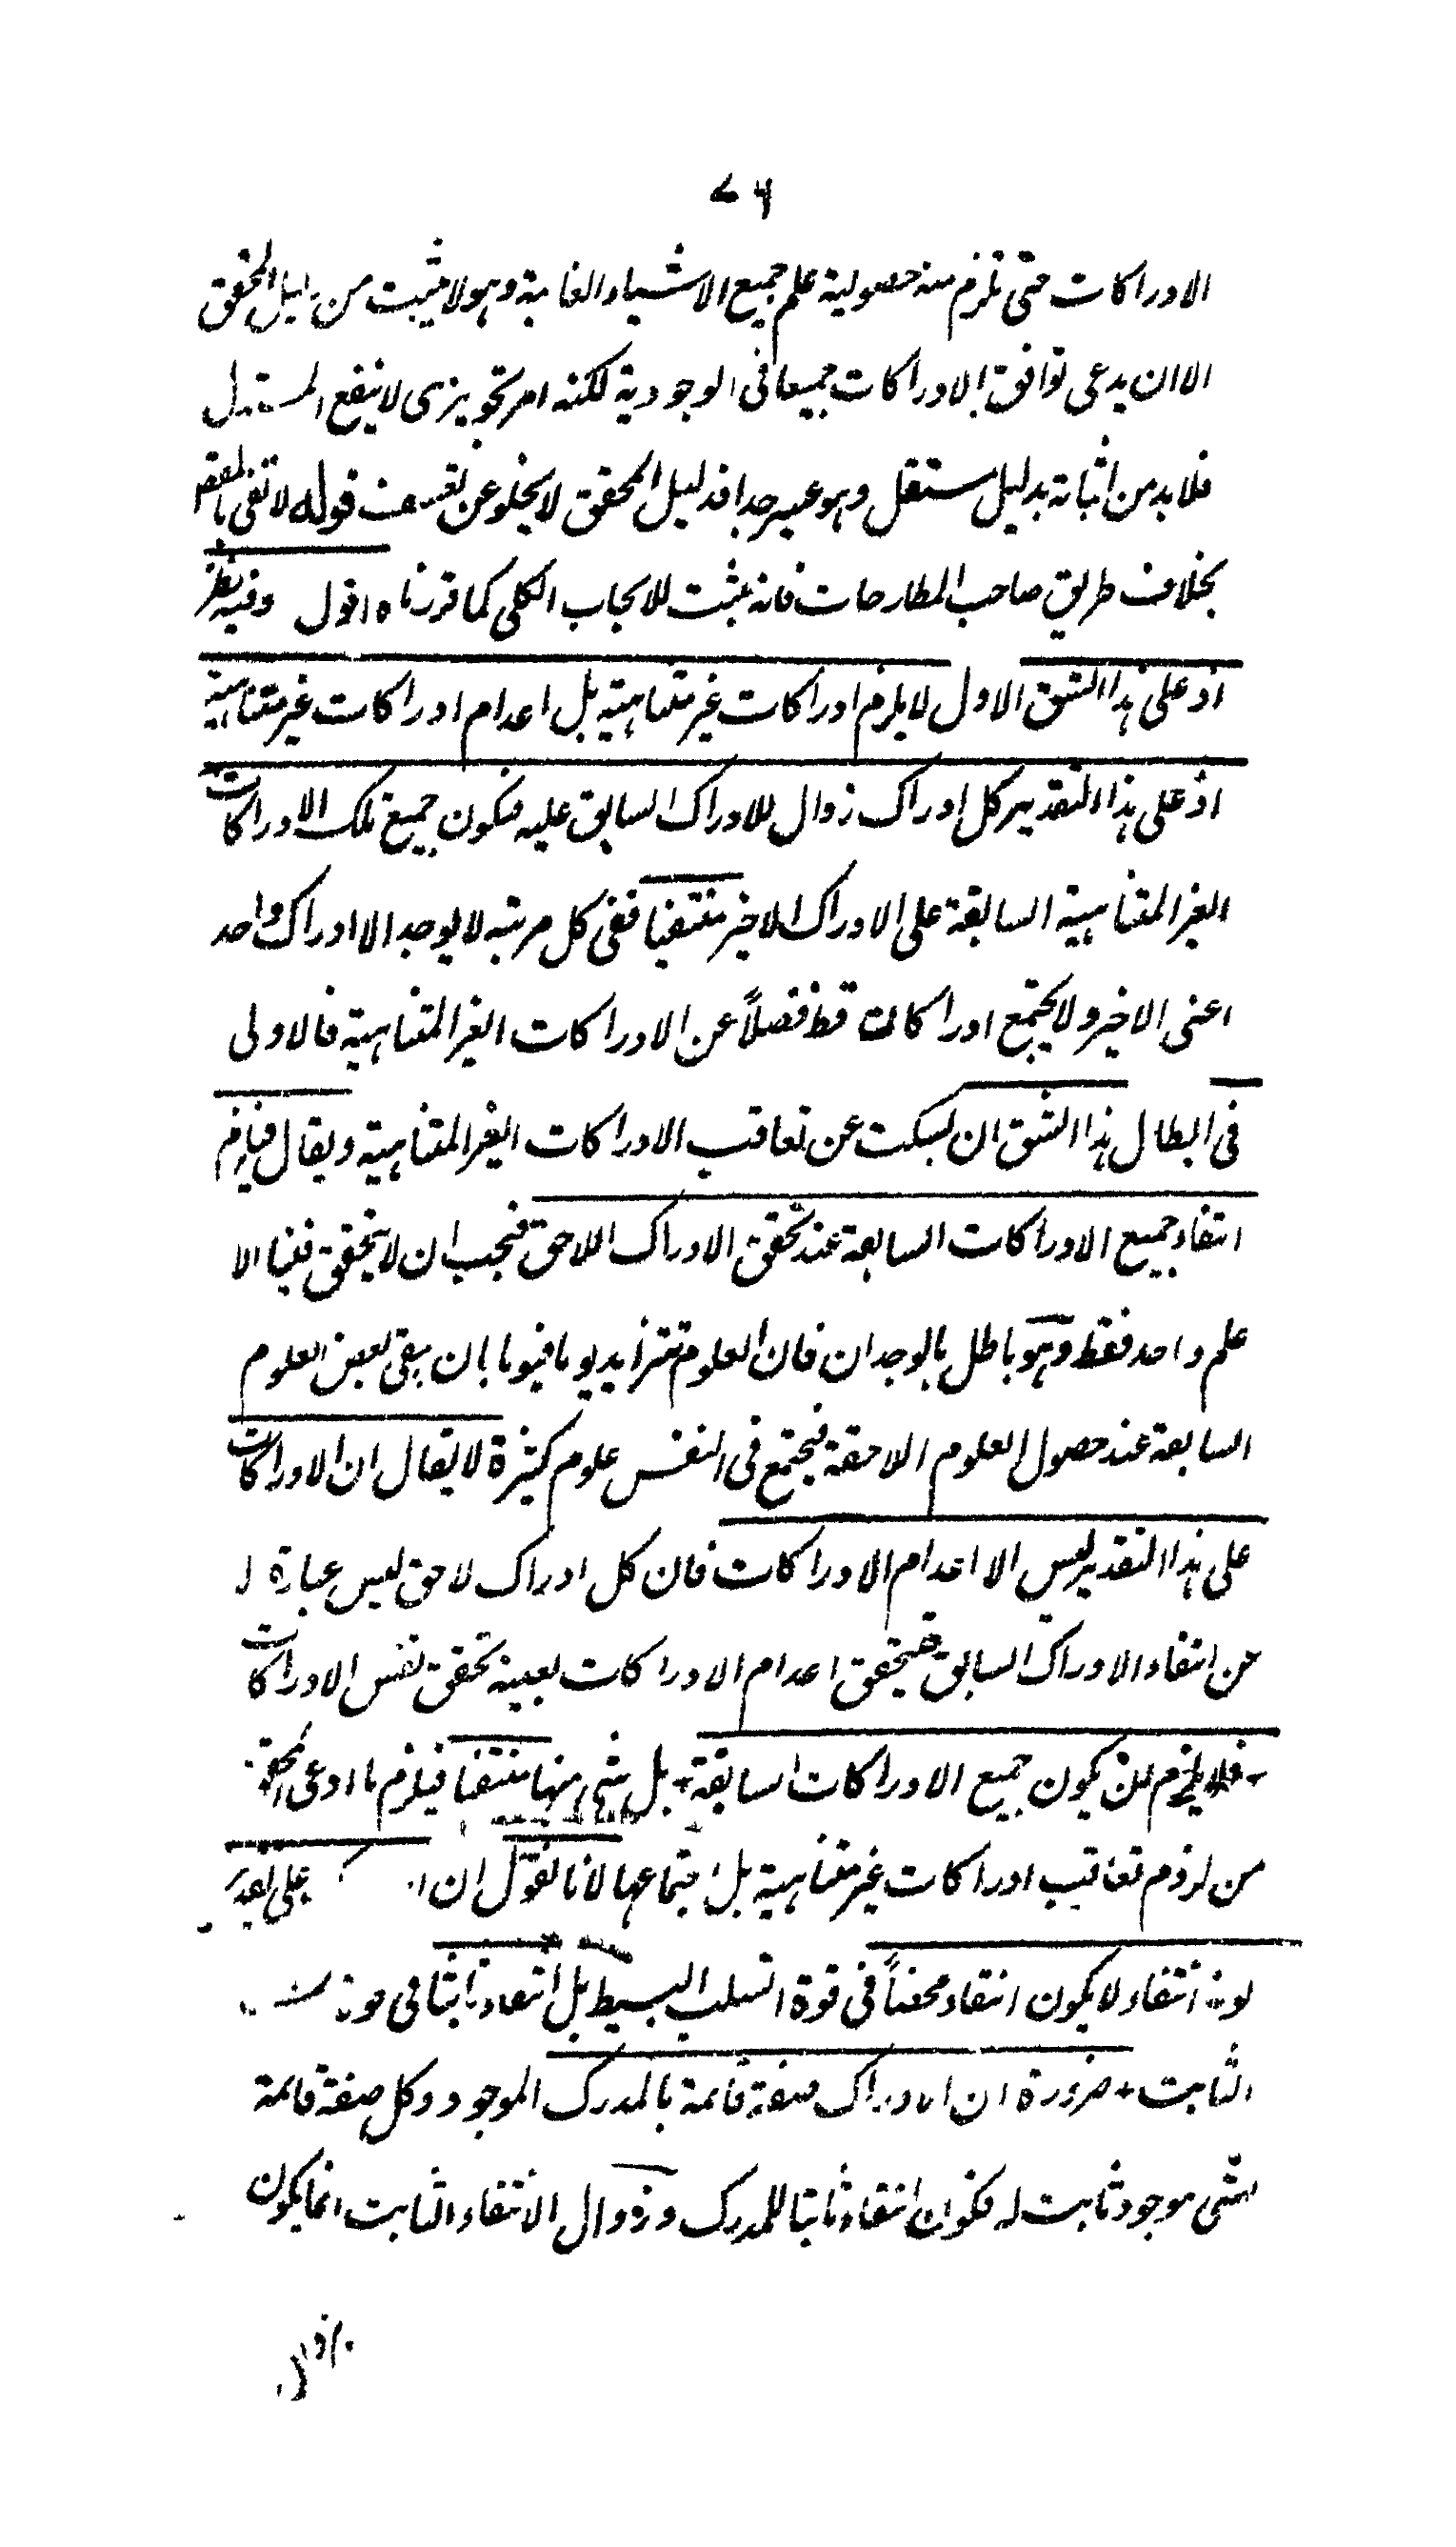 ٧٦
الادراكات حتى تلزم منه حصولية علم جميع الاشياء الغائبة وهو لا يثبت من دليل المحقق
الا ان يدعى توافق الادراكات جميعا فى الوجودية لكنه امر تجويزى لا ينفع المستدل
فلا بد من اثباته بدليل مستقل وهو عسير جدا فدليل المحقق لا يخلو عن تعسف قوله لا تفى بالمقصود
بخلاف طريق صاحب المطارحات فانه مثبت للايجاب الكلى كما قررناه اقول وفيه نظر
اذ على هذا الشق الاول لا يلزم ادراكات غير متناهية بل اعدام ادراكات غير متناهية
اذ على هذا التقدير كل ادراك زوال للادراك السابق عليه فيكون جميع تلك الادراكات
الغير المتناهية السابقة على الادراك الاخير منتفيا ففى كل مرتبه لا يوجد الا ادراك واحد
اعنى الاخير ولا يجتمع ادراكان قط فضلاً عن الادراكات الغير المتناهية فالاولى
فى ابطال هذا الشق ان يسكت عن تعاقب الادراكات الغير المتناهية ويقال فيلزم
انتفاء جميع الادراكات السابعة عند تحقق الادراك اللاحق فيجب ان لا يتحقق فينا الا
علم واحد فقط وهو باطل بالوجدان فان العلوم تتزايد يوما فيوما بان يبقى بعض العلوم
السابعة عند حصول العلوم اللاحقة فيجتمع فى النفس علوم كثيرة لا يقال ان الادراكات
على هذا التقدير ليس الا اعدام الادراكات فان كل ادراك لاحق ليس عبارة
عن انتفاء الادراك السابق فيتحقق اعدام الادراكات بعينه تحقق نفس الادراكات
فلا يلزم ان يكون جميع الادراكات السابقة بل شى منها منتفيا فيلزم ما ادعى المحقق
من لزوم تعاقب ادراكات غير متناهية بل اجتماعها لانا نقول ان على تقدير
كونه انتفاء لا يكون انتفاء محضاً فى قوة السلب البسيط بل انتفاء ثابتا فى قوة
الثابت ضرورة ان الادراك صفة قائمة بالمدرك الموجود وكل صفة قائمة
بشى موجود ثابت له فيكون انتفاء ثابتا للمدرك وزوال الانتفاء الثابت انما يكون